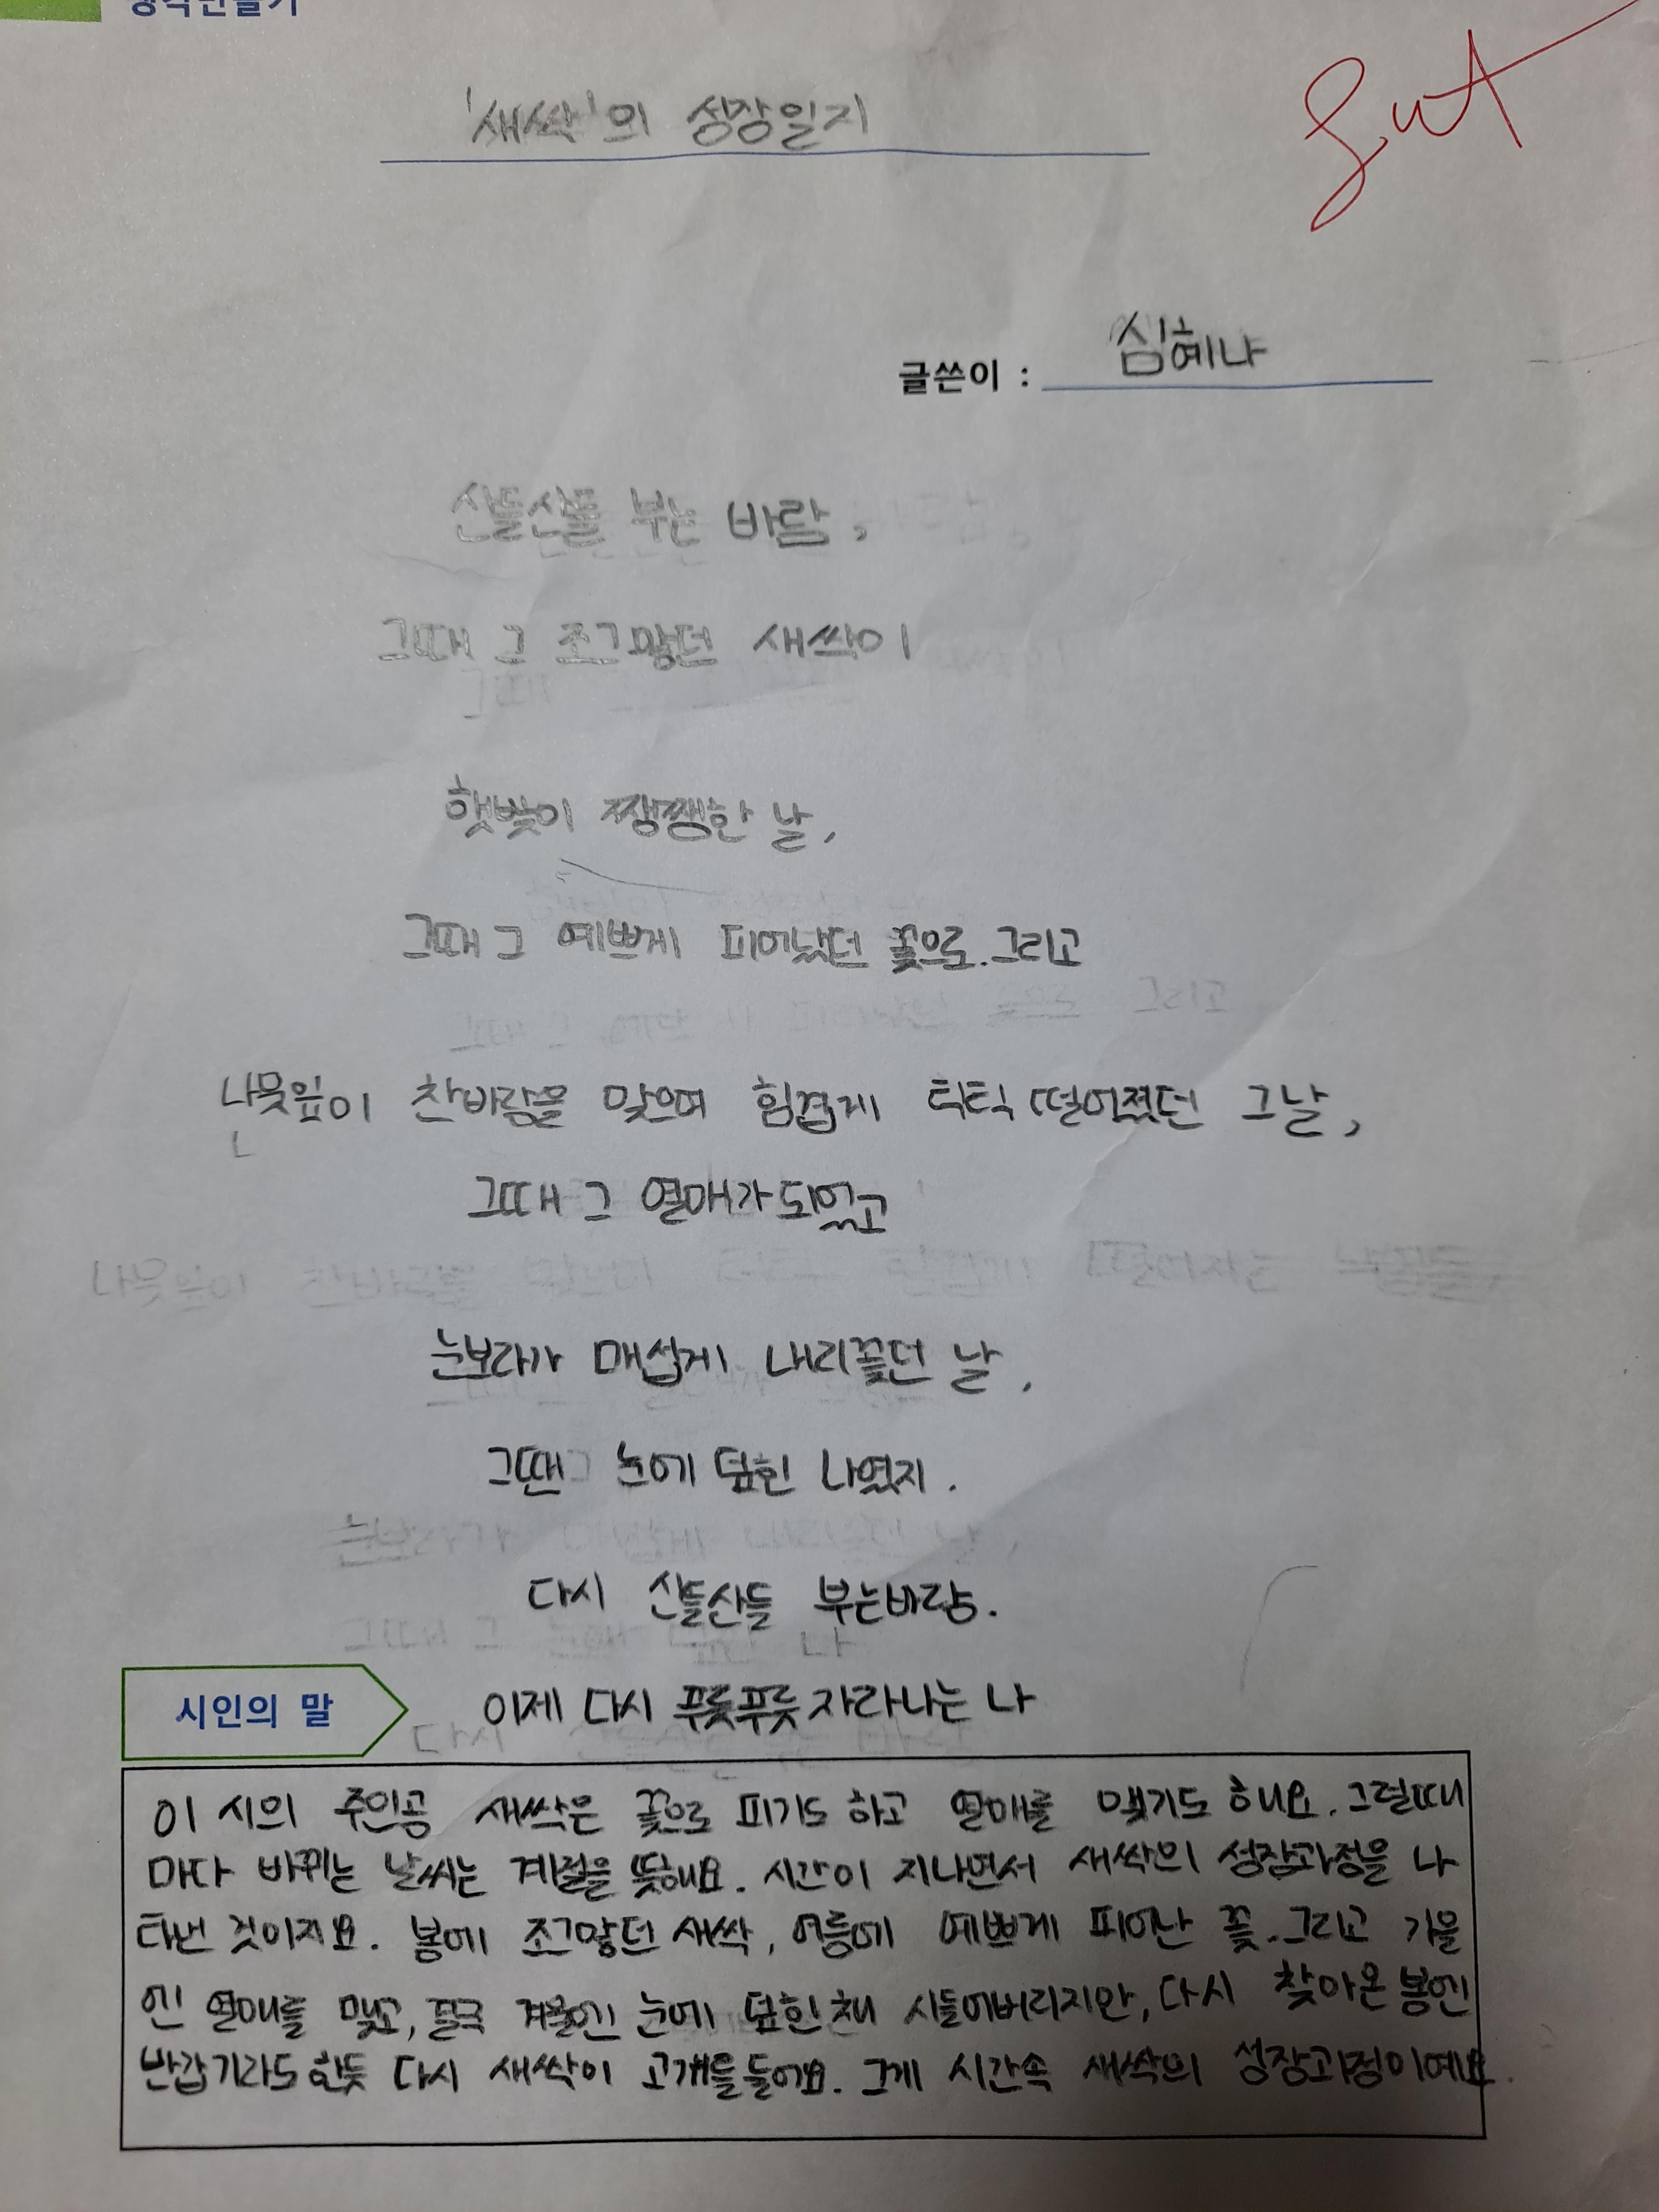 생각만들기
'새싹'의 성장일지
글쓴이 : 심혜나
산들산들 부는 바람,
그때 그 조그맣던 새싹이
햇빛이 쨍쨍한 날,
그때 그 예쁘게 피어났던 꽃으로. 그리고
나뭇잎이 찬바람을 맞으며 힘겹게 틱틱 떨어졌던 그날,
그때 그 열매가 되었고
눈보라가 매섭게 내리꽃던 날,
그땐 눈에 덮힌 나였지.
다시 산들산들 부는바람.
이제 다시 푸릇푸릇 자라나는 나
시인의 말
이 시의 주인공 새싹은 꽃으로 피기도 하고 열매를 맺기도 해요. 그럴때
마다 바뀌는 날씨는 계절을 뜻해요. 시간이 지나면서 새싹의 성장과정을 나
타낸 것이지요. 봄에 조그맣던 새싹, 여름에 예쁘게 피어난 꽃. 그리고 가을
엔 열매를 맺고, 결국 겨울엔 눈에 덮힌채 시들어버리지만, 다시 찾아온 봄엔
반갑기라도 한듯 다시 새싹이 고개를 들어요. 그게 시간속 새싹의 성장과정이예요.